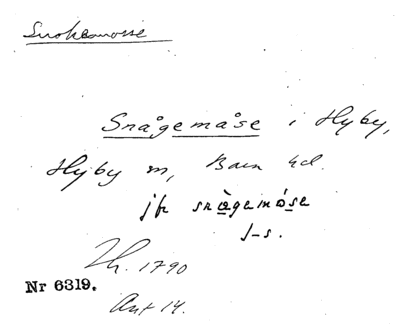 Snokesmosse
Snågemåse i Hyby,
Hyby sn, Bara hd.
jfr snågemóse
J-s.
Th. 1790
Nr 6319.
Ant 14.